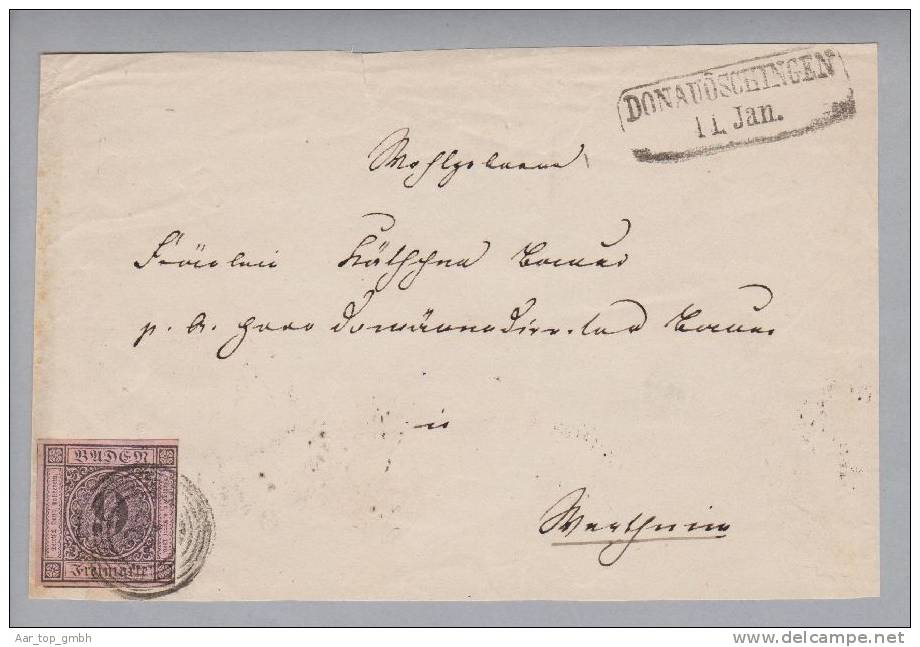 DONAUÖSCHINGEN
11. Jan.
Wohlgeboren
Fräulein Käthchen Bauer
p. A. Herr Domänendirektor Bauer
in
Wertheim
BADEN
9
Freimarke
Aar_top_gmbh
www.delcampe.net